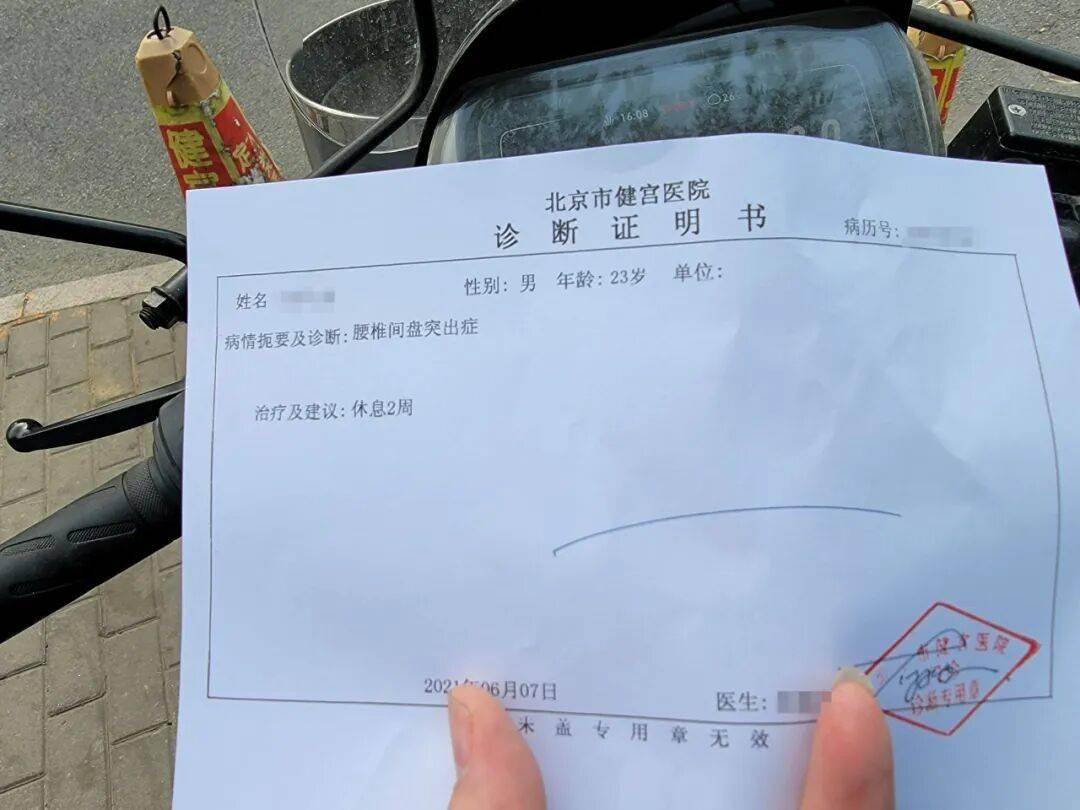 16:08
健
宫
北京市健宫医院
诊断证明书
病历号:
姓名
性别: 男 年龄: 23岁 单位:
病情扼要及诊断: 腰椎间盘突出症
治疗及建议: 休息2周
市健宫医院
诊断专用章
2021年06月07日
医生:
未盖专用章无效